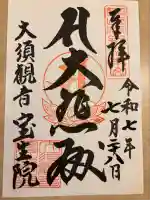 奉拝
令和七年
七月二十八日
大悲殿
大須観音
宝生院